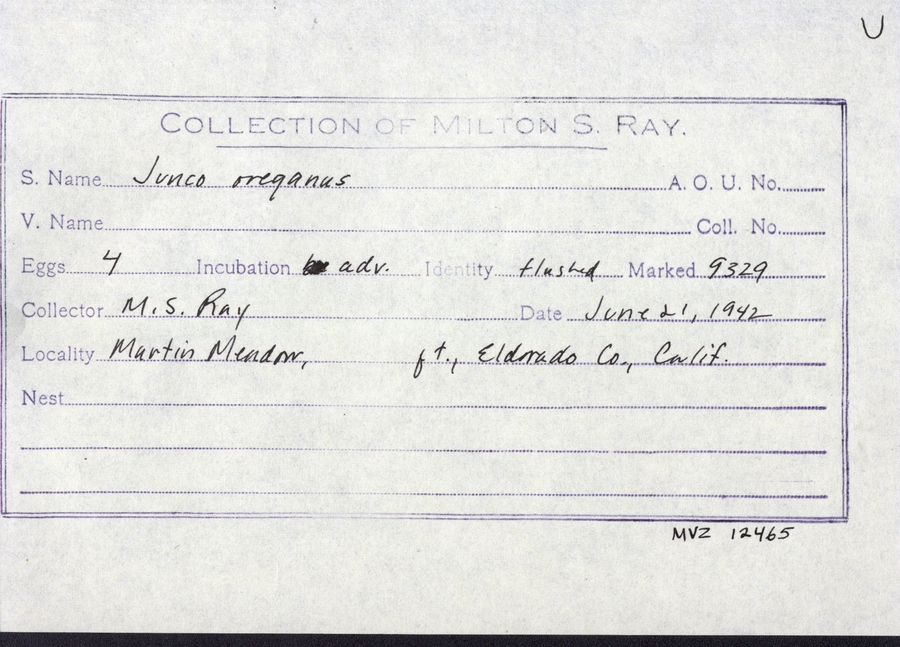 U
COLLECTION OF MILTON S. RAY.
S. Name Junco oreganus A. O. U. No.
V. Name Coll. No.
Eggs 4 Incubation adv. Identity flushed Marked 9329
Collector M.S. Ray Date June 21, 1942
Locality Martin Meadow, ft., Eldorado Co., Calif.
Nest
MVZ 12465